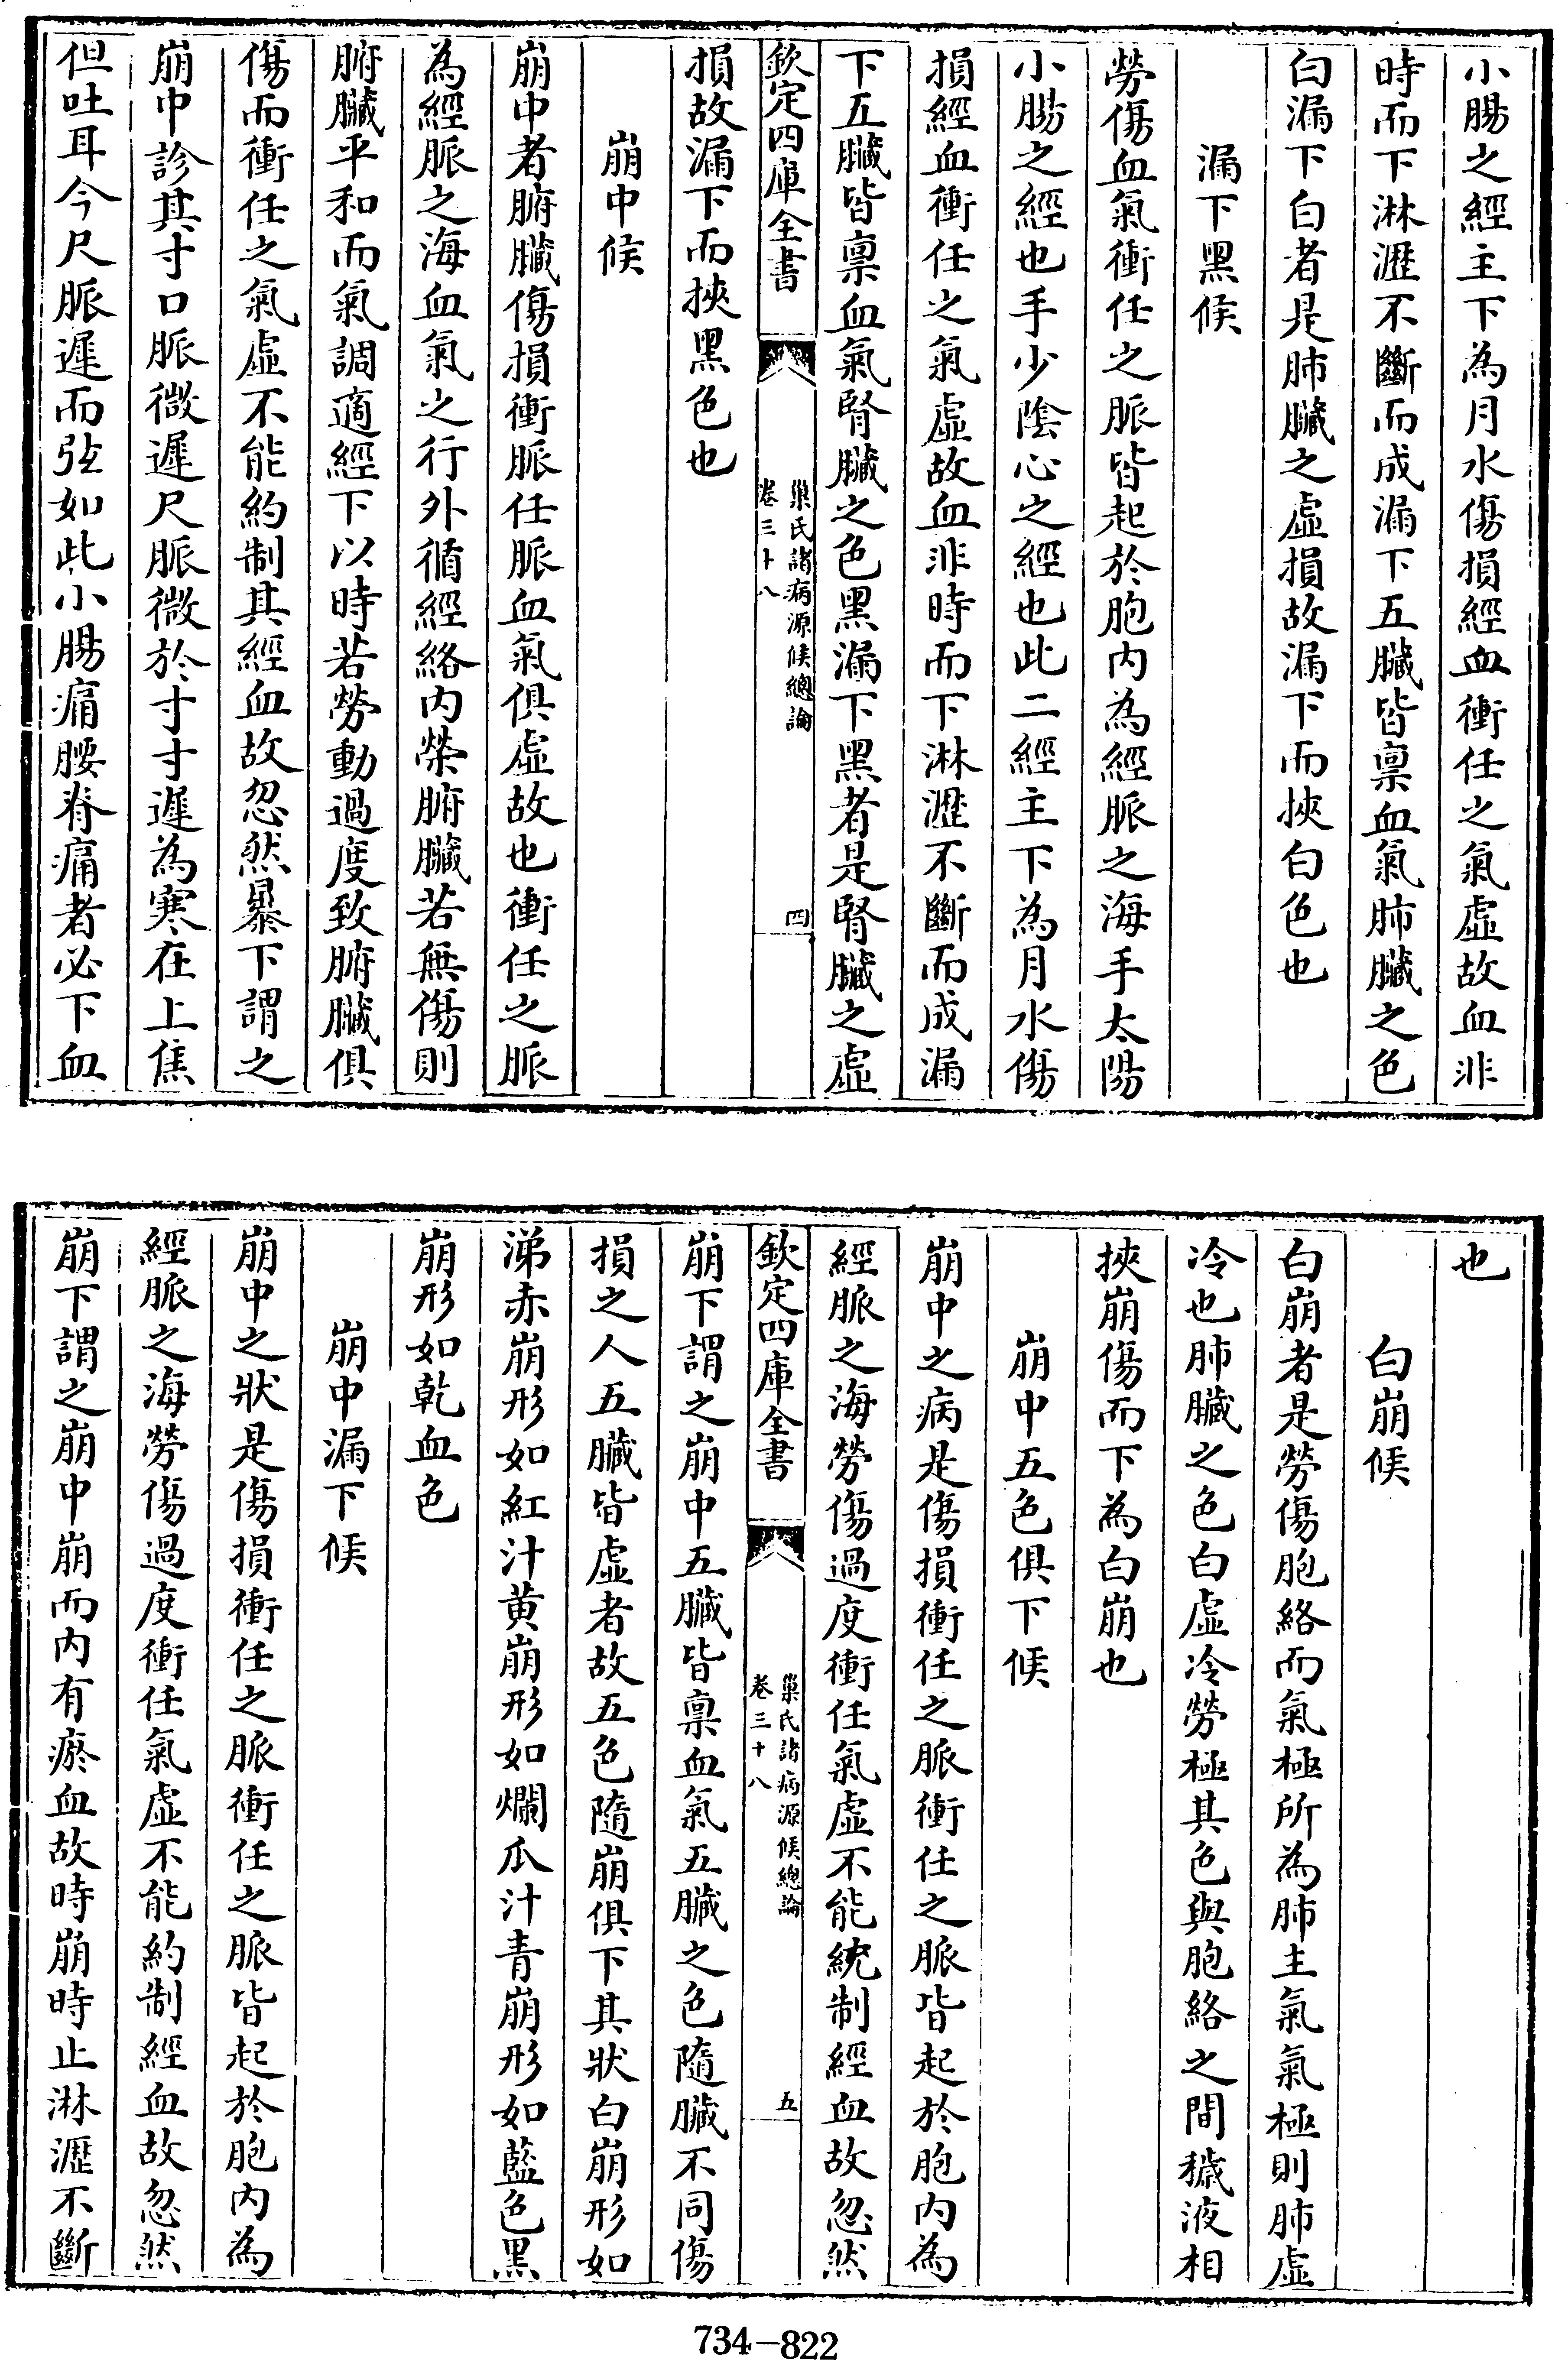 小腸之經主下為月水傷損經血衝任之氣虛故血非
時而下淋瀝不斷而成漏下五臟皆禀血氣肺臟之色
白漏下白者是肺臟之虛損故漏下而挾白色也
漏下黑候
勞傷血氣衝任之脈皆起於胞內為經脈之海手太陽
小腸之經也手少陰心之經也此二經主下為月水傷
損經血衝任之氣虛故血非時而下淋瀝不斷而成漏
下五臟皆禀血氣腎臟之色黑漏下黑者是腎臟之虛
欽定四庫全書
巢氏諸病源候總論
卷三十八
四
損故漏下而挾黑色也
崩中候
崩中者腑臟傷損衝脈任脈血氣俱虛故也衝任之脈
為經脈之海血氣之行外循經絡內榮腑臟若無傷則
腑臟平和而氣調適經下以時若勞動過度致腑臟俱
傷而衝任之氣虛不能約制其經血故忽然暴下謂之
崩中診其寸口脈微遲尺脈微於寸寸遲為寒在上焦
但吐耳今尺脈遲而弦如此小腸痛腰脊痛者必下血
也
白崩候
白崩者是勞傷胞絡而氣極所為肺主氣氣極則肺虛
冷也肺臟之色白虛冷勞極其色與胞絡之間穢液相
挾崩傷而下為白崩也
崩中五色俱下候
崩中之病是傷損衝任之脈衝任之脈皆起於胞內為
經脈之海勞傷過度衝任氣虛不能統制經血故忽然
欽定四庫全書
巢氏諸病源候總論
卷三十八
五
崩下謂之崩中五臟皆禀血氣五臟之色隨臟不同傷
損之人五臟皆虛者故五色隨崩俱下其狀白崩形如
涕赤崩形如紅汁黄崩形如爛瓜汁青崩形如藍色黑
崩形如乾血色
崩中漏下候
崩中之狀是傷損衝任之脈衝任之脈皆起於胞內為
經脈之海勞傷過度衝任氣虛不能約制經血故忽然
崩下謂之崩中崩而內有瘀血故時崩時止淋瀝不斷
734—822